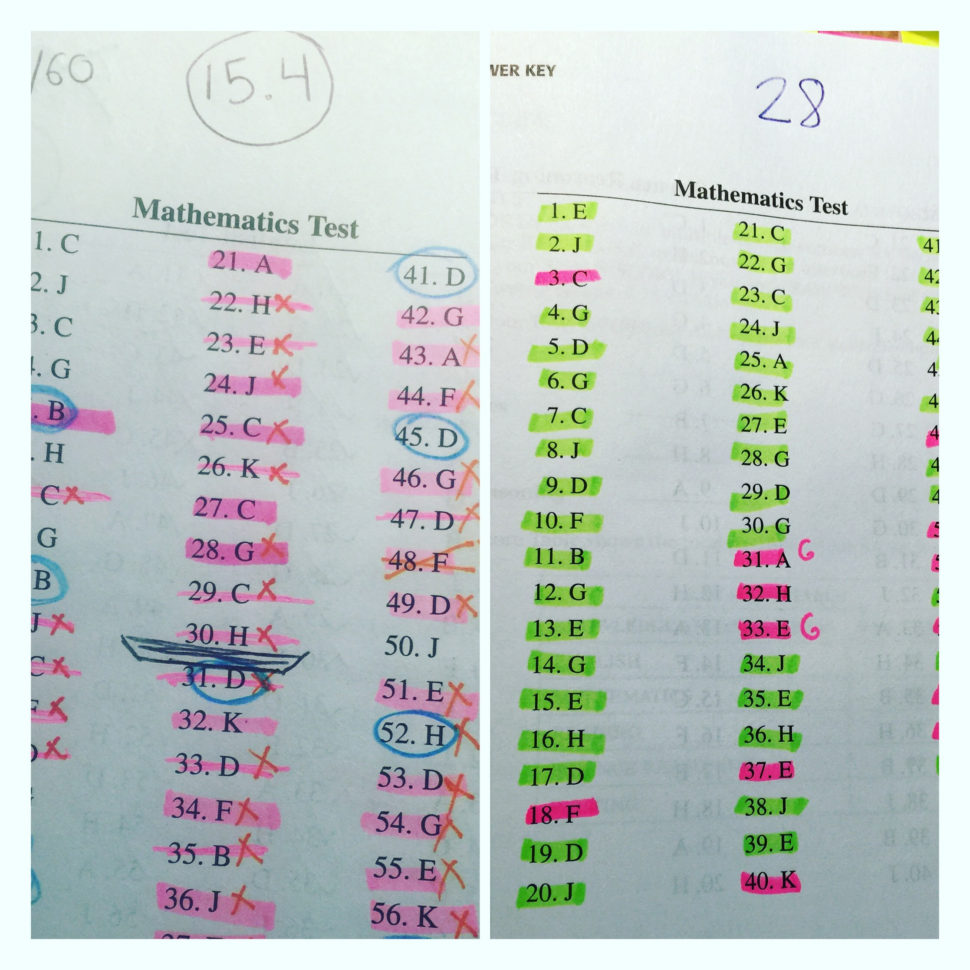 /60
15.4
Mathematics Test
1. C
2. J
3. C
4. G
. B
. H
C
G
B
J
C
F
21. A
22. H
23. E
24. J
25. C
26. K
27. C
28. G
29. C
30. H
31. D
32. K
33. D
34. F
35. B
36. J
41. D
42. G
43. A
44. F
45. D
46. G
47. D
48. F
49. D
50. J
51. E
52. H
53. D
54. G
55. E
56. K
WER KEY
28
Mathematics Test
1. E
2. J
3. C
4. G
5. D
6. G
7. C
8. J
9. D
10. F
11. B
12. G
13. E
14. G
15. E
16. H
17. D
18. F
19. D
20. J
21. C
22. G
23. C
24. J
25. A
26. K
27. E
28. G
29. D
30. G
31. A G
32. H
33. E G
34. J
35. E
36. H
37. E
38. J
39. E
40. K
41
42